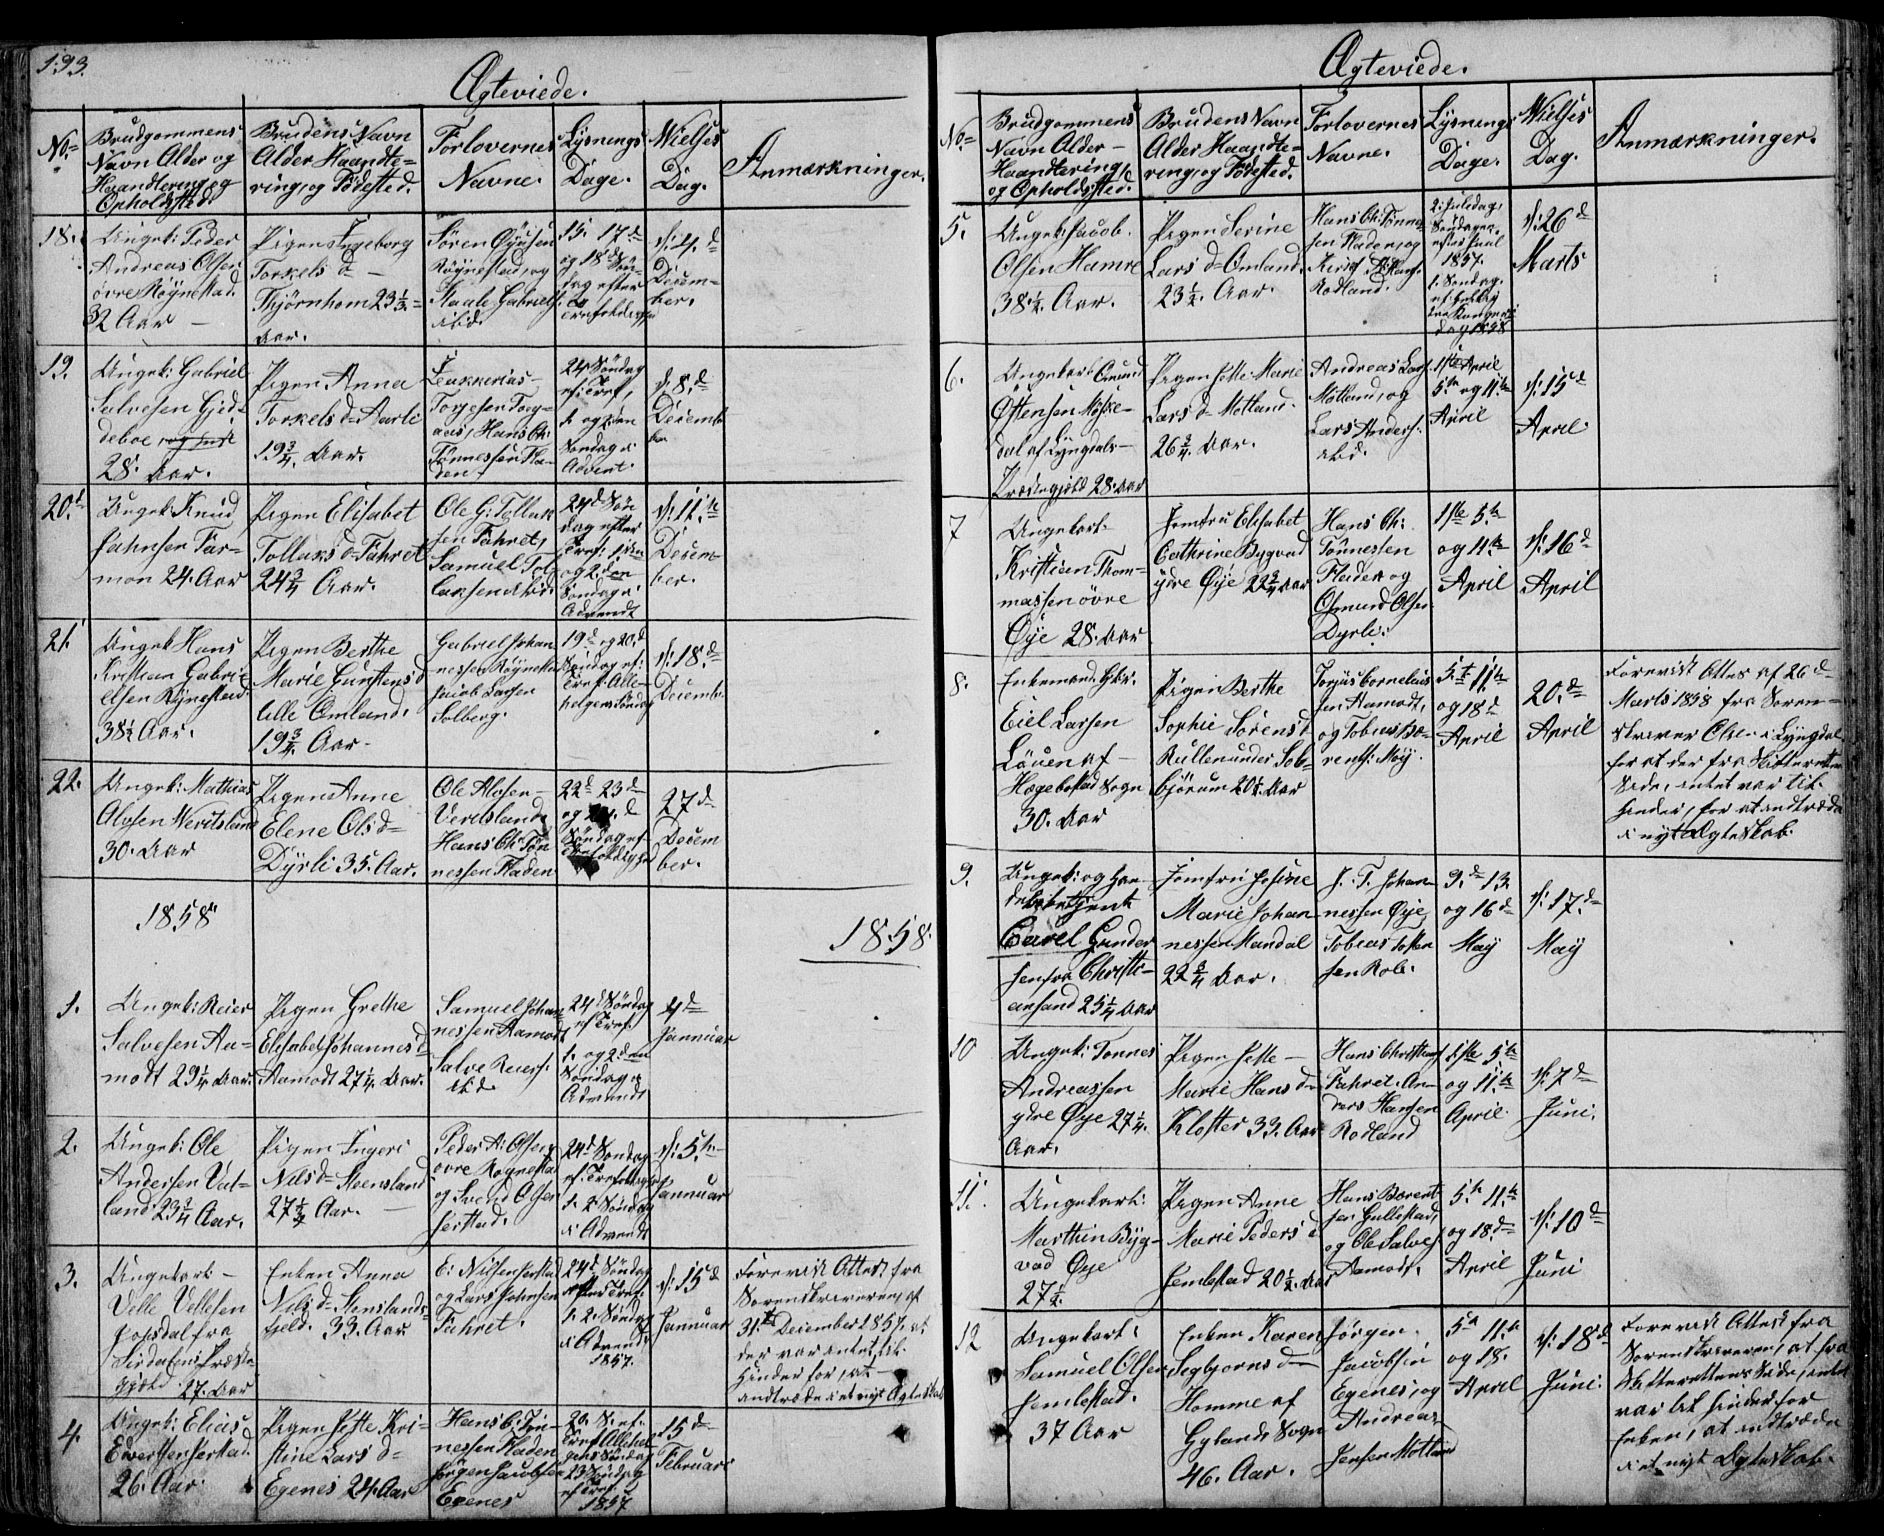 193.
Ægteviede.
No.
Brudgommens
Navn Alder og
Haandtering, og
Opholdsted.
Brudens Navn
Alder Haandte-
ring, og Fødested.
Forlovernes
Navne.
Lysnings
Dage.
Wielses
Dag.
Anmærkninger.
18.
Ungek: Peder
Andreas Olsen
øvre Røynestad
32 Aar
Pigen Ingeborg
Torkels d
Thjörnhom 23 1/3
Aar.
Sören Öyusen
Röynestad, og
Staale Gabriels
ibid.
15. 17d
og 18d Søn-
dag efter
Trefoldigh
d: 4.d
Decem-
ber.
19.
Ungek: Gabriel
Salvesen Gjed-
deboe
28 Aar.
Pigen Anna
Torkels d Aarli
19 3/4 Aar.
Zakkerias
Torjesen Torg-
aas, Hans Ch:
Tönnessen Fla-
den
24 Søndag
ef: Tref,
1. og 2den
Söndag i
Advent.
d: 8.d
Decemb
ber
20.d
Ungek Knud
Jahnsen Far-
mon 24. Aar
Pigen Elisabet
Tollaks d Fahret
24 3/4 Aar.
Ole G: Tollak
sen Fahret,
Samuel Tol-
laksen ibid.
24d Søn
dag efter
Tref: 1den
og 2.den
Søndag i
Advendt
d: 11.te
Decem-
ber.
21.
Ungek Hans
Kristian Gabri-
elsen Röynestad
38 1/2 Aar.
Pigen Berthe
Marie Guustens d
lille Omland.
19 3/4 Aar.
Gabriel Johan
nessen Røynestad
Jacob Larsen
Solberg.
19d og 20.d
Søndag ef:
Tref: Alle-
helgensöndag
d: 18.d
Decemb
22.
Ungek: Mathias
Alofsen Weritsland
30. Aar
Pigen Anne
Elene Ols d
Dyrli 35. Aar.
Ole Alofsen
Veritsland
Hans Ch: Tön
nessen Fladen
22d 23d
og 24.d
Söndag ef
Trefoldighe
27d
Decem
ber.
1858
1858.
1.
Ungek: Reier
Salvesen Aa-
modt 29 1/4 Aar.
Pigen Grethe
Elisabet Johannes d
Aamodt 27 1/4 Aar.
Samuel Johan-
nessen Aamodt
Salve Reiers.
ibid.
24d Søndag
ef Tref:
1. og 2.den
Søndag i
Advendt
4de
Januuar
2.
Ungek: Ole
Andersen Vat-
land 23 3/4 Aar.
Pigen Ingeri
Nils d Steensland
27 1/2 Aar.
Peder A: Olsen
övre Røynestad
og Svend Olsen
Jerstad.
24d Søndag
ef: Trefoldigh
1. 2. Søndag
i Advendt
d: 5.te
Januuar
3.
Ungekarl
Velle Vellesen
Josdal fra
Sirdalens Præste
gjeld. 27. Aar
Enken Anna
Nils d Stenslands-
fjeld. 33. Aar
E: Nilsen Jerstad
og Lars Johnsen
Fahret.
24d Søndag
efter Tref:
1. 2. Søndag
i Advendt
1857.
d: 15d
Januuar
Forevist Attest fra
Sorenskriveren, af
31.te December 1857. at
der var intet til
Hinder for, at
indtræde i et nyt Ægteskab
4.
Ungek: Elias
Evertsen Jerstad.
26. Aar.
Pigen Jette Kri-
stine Lars d
Egenes 24. Aar
Hans C: Tön-
nessen Fladen
Jörgen Jacobsen
Egenes
20. S. ef.
Tref. Allehel
gens Søndag
23 Søndag
ef Tref.
1857
15d
Februari
Ægteviede.
No.
Brudgommens
Navn Alder
Haandtering,
og Opholdsted.
Brudens Navn
Alder Haandte-
ring, og Fødested.
Forlovernes
Navne.
Lysnings
Dage.
Wielses
Dag.
Anmærkninger.
5.
Ungek: Jacob
Olsen Hamre
38 1/2 Aar.
Pigen Serine
Lars d Omland.
23 1/2. Aar.
Hans Ch: Tønne
sen Fladen, og
Rodland.
2: Juledag,
Søndagen
efter Juul
1857.
1. Søndag
1858
d: 26d
Marts
6.
Ungekarl Omund
Östensen Möske-
dal af Lyngdals
Præstegjeld 28. Aar
Pigen Jette Marie
Lars d Motland.
26 3/4. Aar.
Andreas Lars
Motland, og
Lars Anders.
ibid.
1ste April
5te og 11te
April
d: 15d
April.
7
Ungekarl
Kristian Thom-
massen övre
Øye 28. Aar
Jomfru Elisabet
Cathrine Bygvad
ydre Øye 22 3/4 Aar
Hans Ch:
Tönnesen
Fladen og
Osmund Olsen
Dyrli.
1ste 5.te
og 11.te
April
d: 16d
April
8.
Enkemand Gbr.
Eiel Larsen
Löuen af
Hægebostad Sogn
30. Aar
Pigen Berthe
Sophie Sörens d
Rullen under Sol-
björum 20 1/2 Aar
Torjus Cornelius
sen Aamodt,
og Tobias Be-
rents. Moy.
5.te 11te
og 18d
April
20.de
April
Forevist Attes af 26d
Marts 1858 fra Soren-
skriver Olsen i Lyngdal
for at der fra Skifterettens
Side, intet var til
hinder, for at indtræde
i nyt Ægteskab.
9.
Ungek: og Han-
delsbetjent
Carel Gunder
sen fra Christi-
ansand 25 1/4 Aar
Jomfru Josine
Marie Johan
nessen Mandal
22 3/4 Aar.
J. T. Johan-
nessen Øye
Tobias
sen Rob.
9.de 13.
og 16d
May
d: 17.d
May
10
Ungek: Tønnes
Andreassen
ydre Øye 27 1/4.
Aar.
Pigen Jette
Marie Hans d
Kloster 33. Aar
Hans Christians
Fahret. An-
ders Hansen
Rodland
1ste 5te
og 11.te
April.
d: 7d
Juni.
11.
Ungekarl:
Marthin Byg-
vad Øye
27 1/2.
Pigen Anne
Marie Peders d
Jemlestad 20 1/2. Aar
Hans Barent
sen Gullestad,
og Ole Salves.
Aamodt.
5.te 11.te
og 18.de
April
d: 10d
Juni
12
Ungekarl:
Samuel Olsen
Jemlestad.
37 Aar
Enken Karen
Segbjorns d
Homme af
Gylands Sogn
46. Aar.
Jörgen
Jacobsen
Egenes, og
Andreas
Jensen Motland
5te 11.te
og 18.
April
d: 18d
Juni.
Forevist Attest fra
Sorenskriveren, at fra
Skifterettens Side, intet
var til hinder for
Enken, at indtræde
i et nyt Ægteskab.